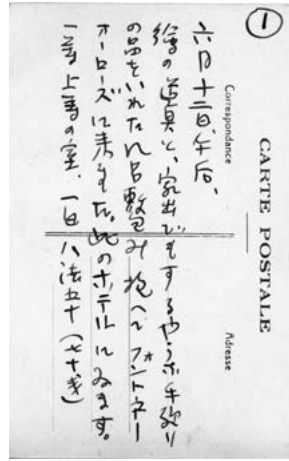 ①
CARTE POSTALE
Correspondance
Adresse
六月十二日、午后、
絵の道具と、家出でもするやうな手廻り
の品をいれた風呂敷包み抱へてフォントネー
オーローズに来ました。此のホテルにゐます。
一番上等の室、一日八法五十(七十銭)